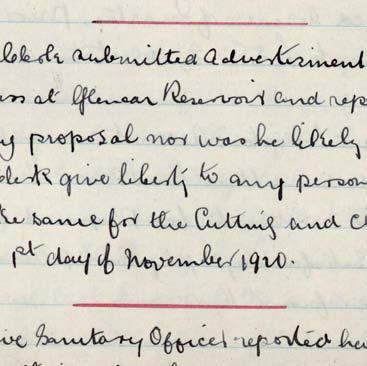 submitted Advertisment
at Glencar Reservoir and rep
proposal nor was he likely
give liberty to any person
same for the Cutting and C
day of November 1920.
Sanitary Officer reported ha